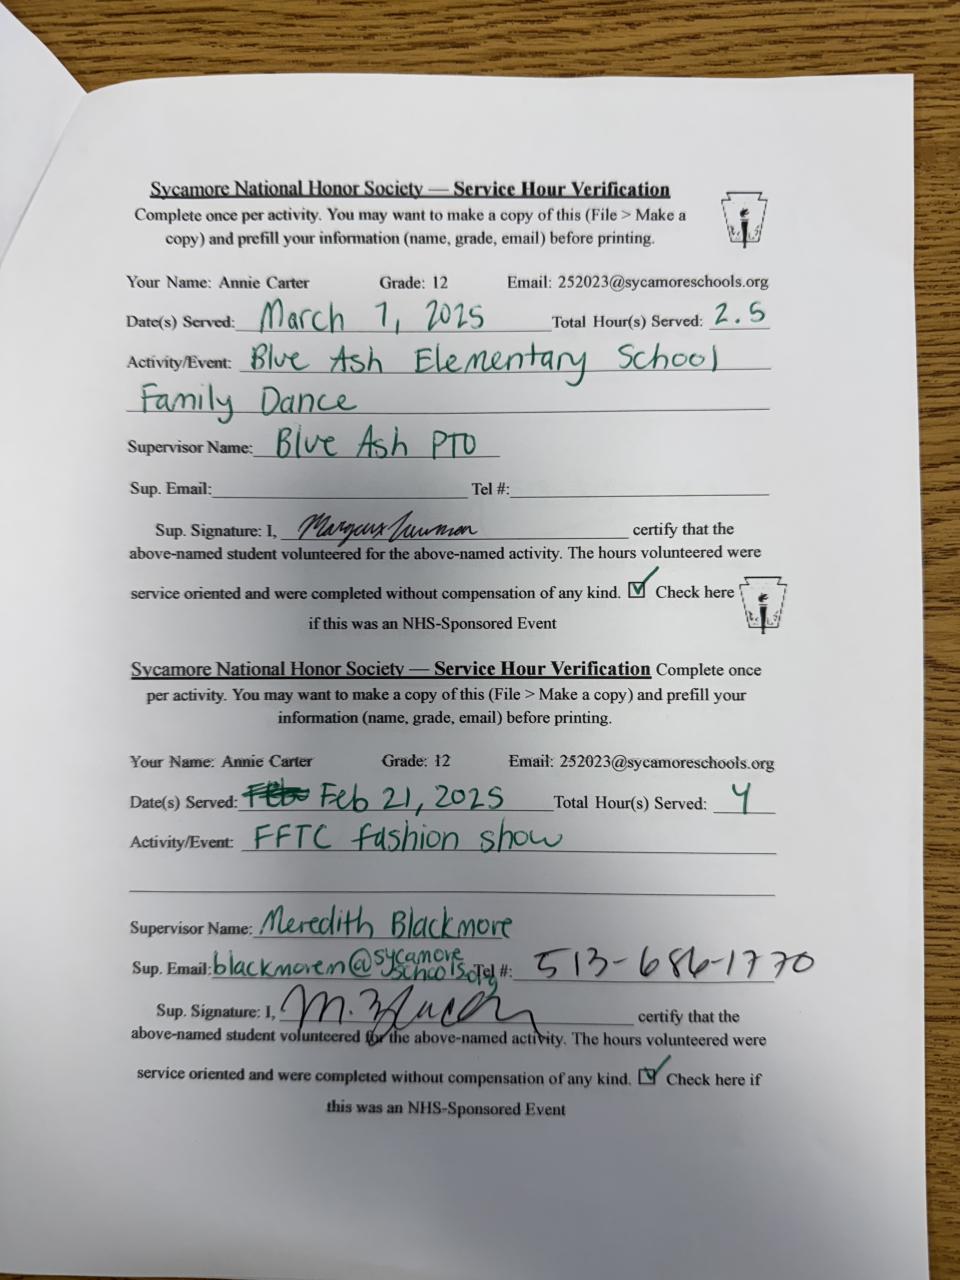 Sycamore National Honor Society — Service Hour Verification
Complete once per activity. You may want to make a copy of this (File > Make a
copy) and prefill your information (name, grade, email) before printing.
Your Name: Annie Carter Grade: 12 Email: 252023@sycamoreschools.org
Date(s) Served: March 7, 2025 Total Hour(s) Served: 2.5
Activity/Event: Blue Ash Elementary School
Family Dance
Supervisor Name: Blue Ash PTO
Sup. Email: Tel #:
Sup. Signature: I, certify that the
above-named student volunteered for the above-named activity. The hours volunteered were
service oriented and were completed without compensation of any kind. Check here
if this was an NHS-Sponsored Event
Sycamore National Honor Society — Service Hour Verification Complete once
per activity. You may want to make a copy of this (File > Make a copy) and prefill your
information (name, grade, email) before printing.
Your Name: Annie Carter Grade: 12 Email: 252023@sycamoreschools.org
Date(s) Served: Feb 21, 2025 Total Hour(s) Served: 4
Activity/Event: FFTC fashion show
Supervisor Name: Meredith Blackmore
Sup. Email: blackmorem@sycamoreschools.org Tel #: 513-686-1770
Sup. Signature: I, certify that the
above-named student volunteered for the above-named activity. The hours volunteered were
service oriented and were completed without compensation of any kind. Check here if
this was an NHS-Sponsored Event